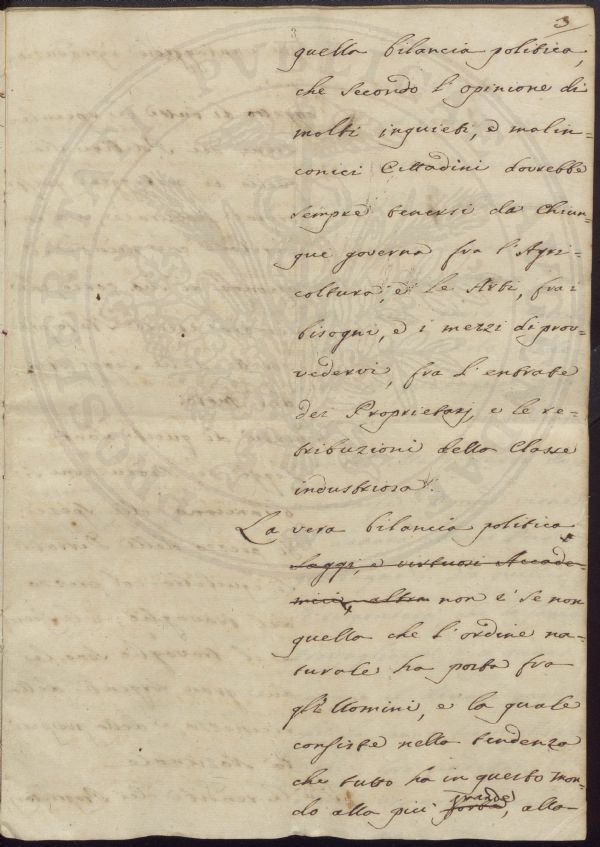 3
quella bilancia politica,
che secondo l'opinione di
molti inquieti, e malin=
conici Cittadini dovrebbe
sempre tenersi da Chiun=
que governa fra l'Agri=
coltura, e le Arti, fra i
bisogni, e i mezzi di prov=
vedervi, fra l'entrate
dei Proprietarj, e le re=
tribuzioni della Classe
industriosa.
La vera bilancia politica
saggi, e virtuosi Accade=
mici, altra non è se non
quella che l'ordine na=
turale ha posta fra
gli Uomini, e la quale
consiste nella tendenza
che tutto ha in questo mon=
do alla più grande, alla